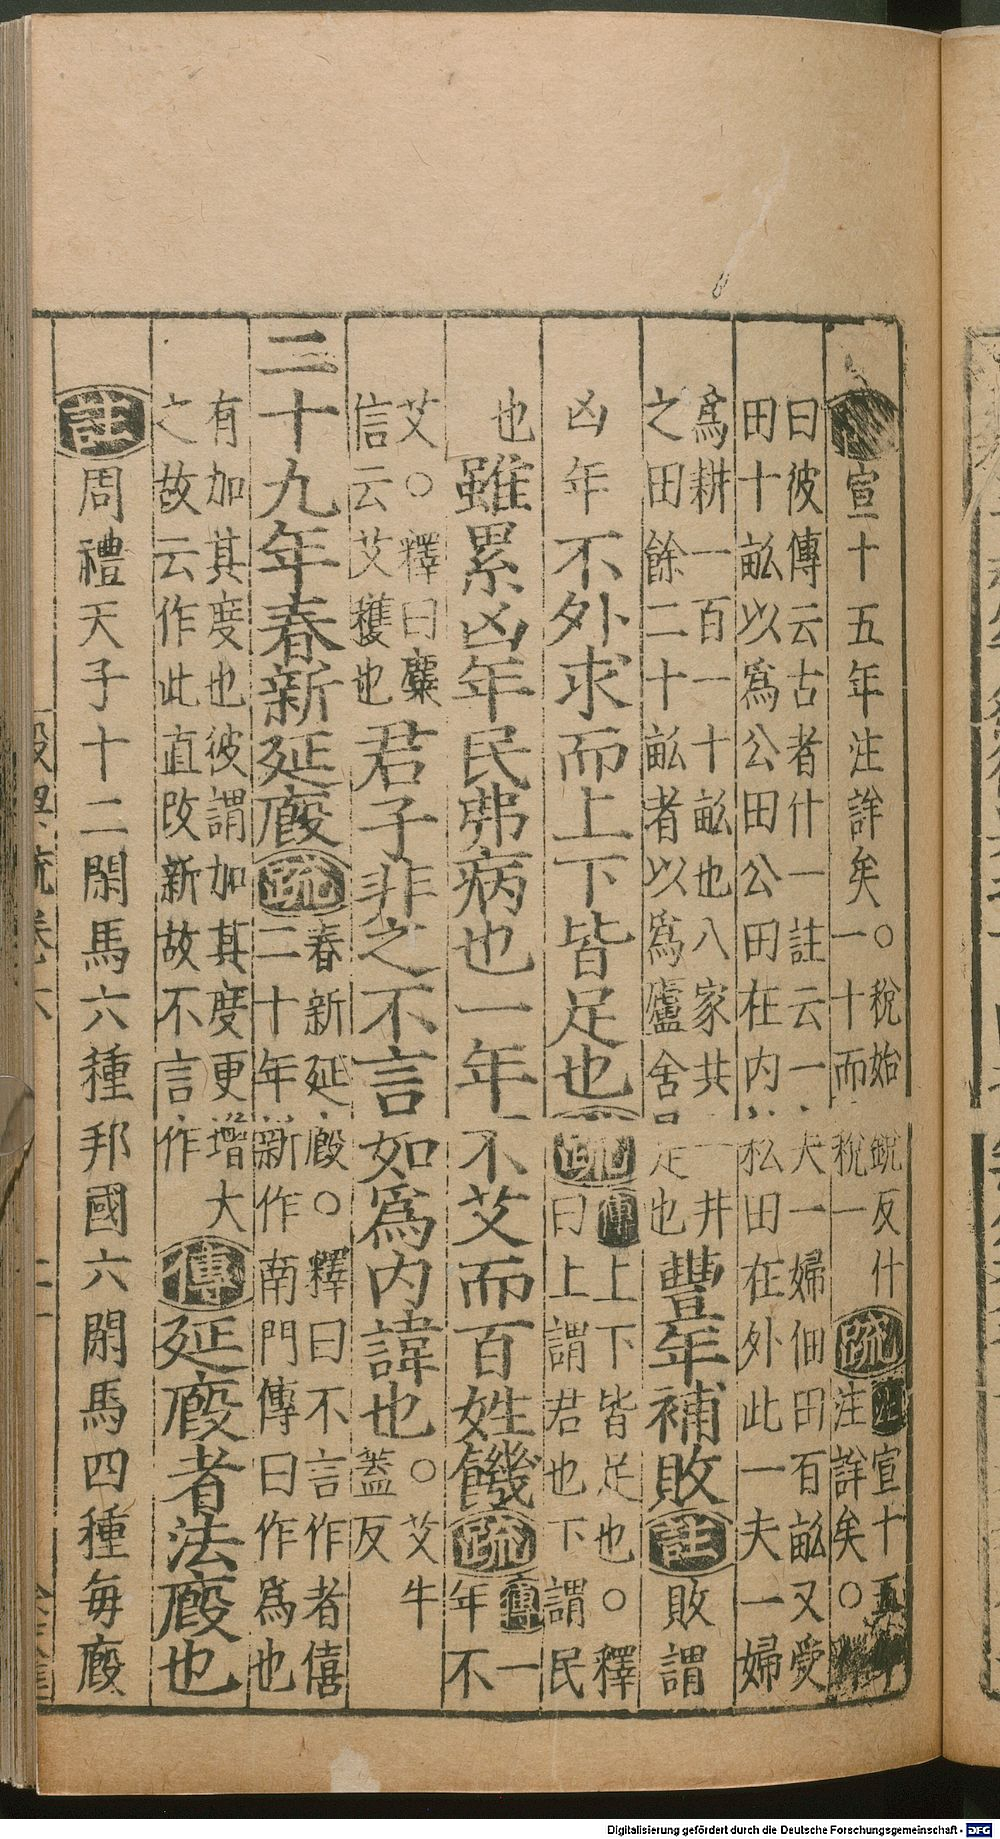 註宣十五年注詳矣。稅始銳反什
一十而稅一疏注宣十五
注詳矣。釋
曰彼傳云古者什一註云一夫一婦佃田百畝又受
田十畝以爲公田公田在内私田在外此一夫一婦
爲耕一百一十畝也八家共一井
之田餘二十畝者以爲廬舍是也豐年補敗註敗謂
凶年不外求而上下皆足也疏傳上下皆足也。釋
曰上謂君也下謂民
也雖累凶年民弗病也一年不艾而百姓饑疏傳一
年不
艾。釋曰麋
信云艾穫也君子非之不言如爲内諱也。艾牛
蓋反
二十九年春新延廄疏春新延廄。釋曰不言作者僖
二十年新作南門傳曰作爲也
有加其度也彼謂加其度更增大
之故云作此直改新故不言作傳延廄者法廄也
註周禮天子十二閑馬六種邦國六閑馬四種每廄
Digitalisierung gefördert durch die Deutsche Forschungsgemeinschaft - DFG